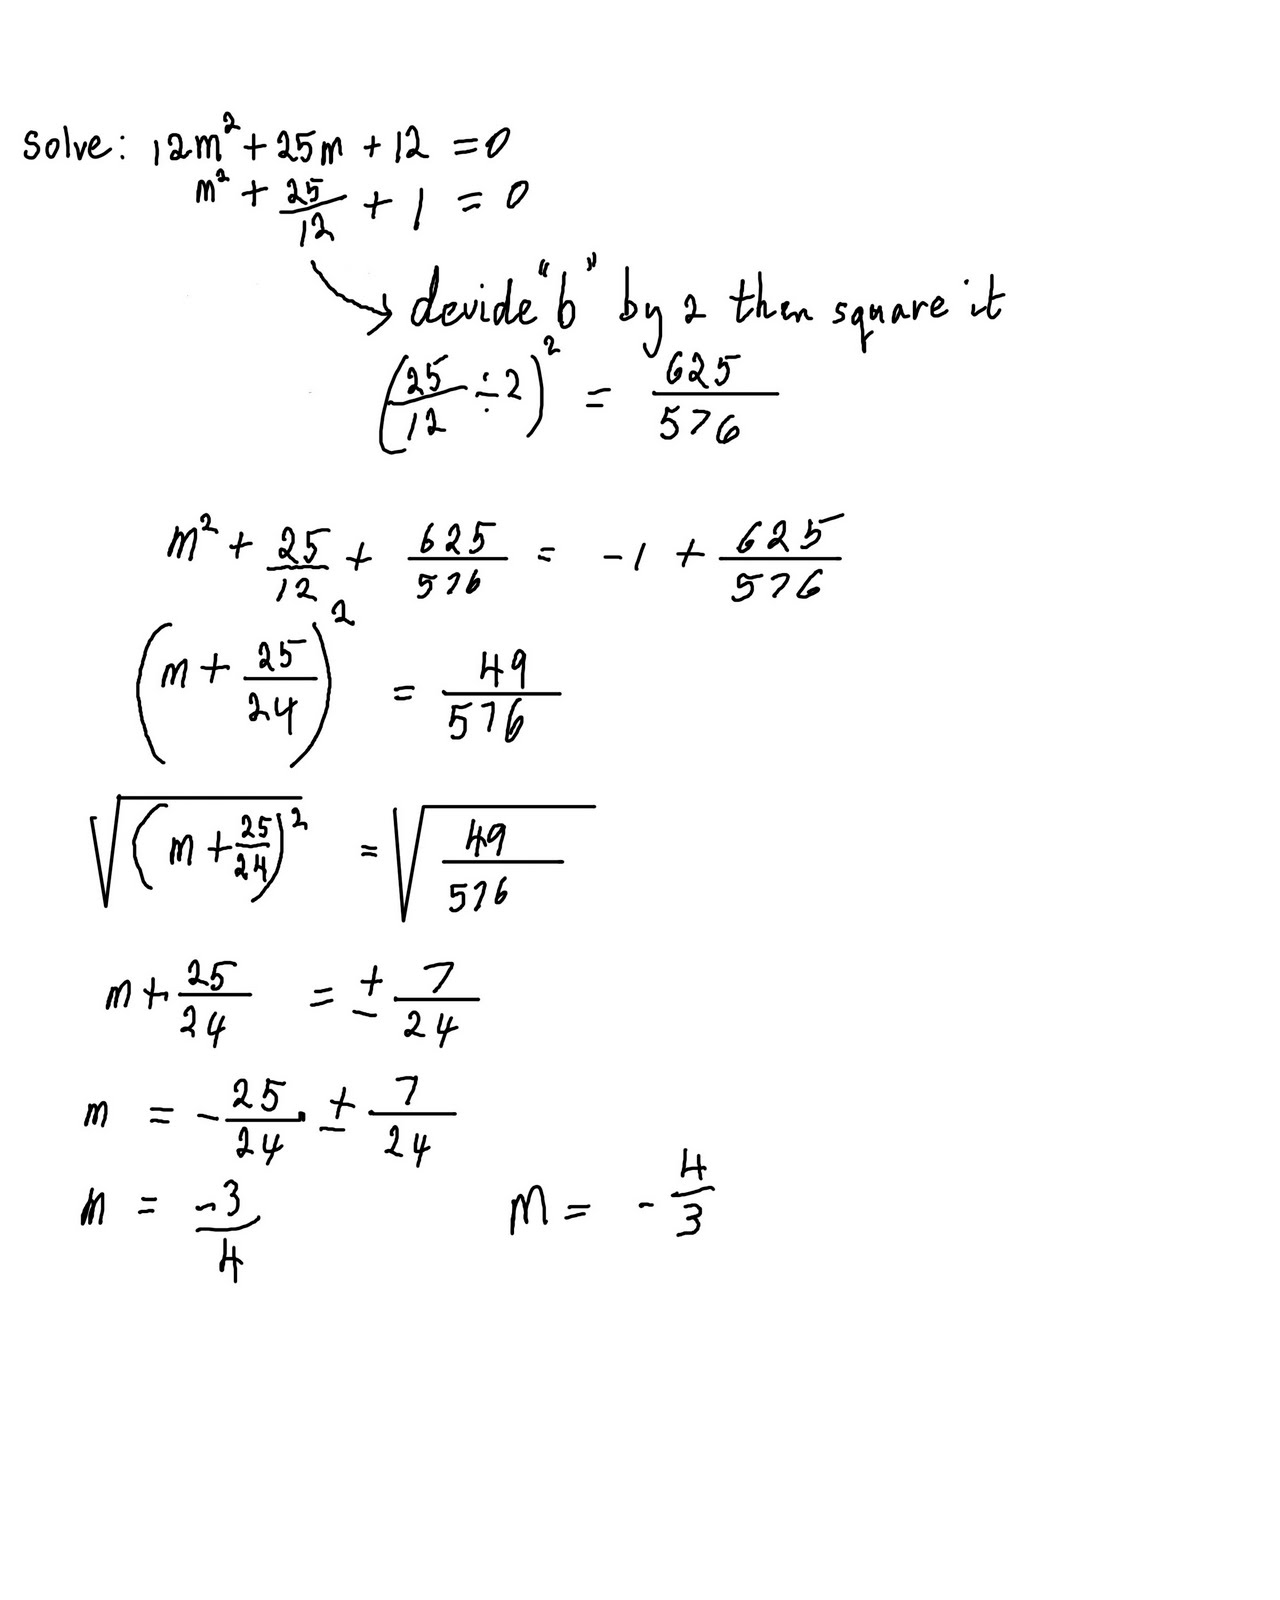 solve: 12m² + 25m + 12 = 0
m² + 25/12 + 1 = 0
devide "b" by 2 then square it
(25/12 ÷ 2)² = 625/576
m² + 25/12 + 625/576 = -1 + 625/576
(m + 25/24)² = 49/576
√(m + 25/24)² = √49/576
m + 25/24 = ± 7/24
m = -25/24 ± 7/24
m = -3/4 m = -4/3